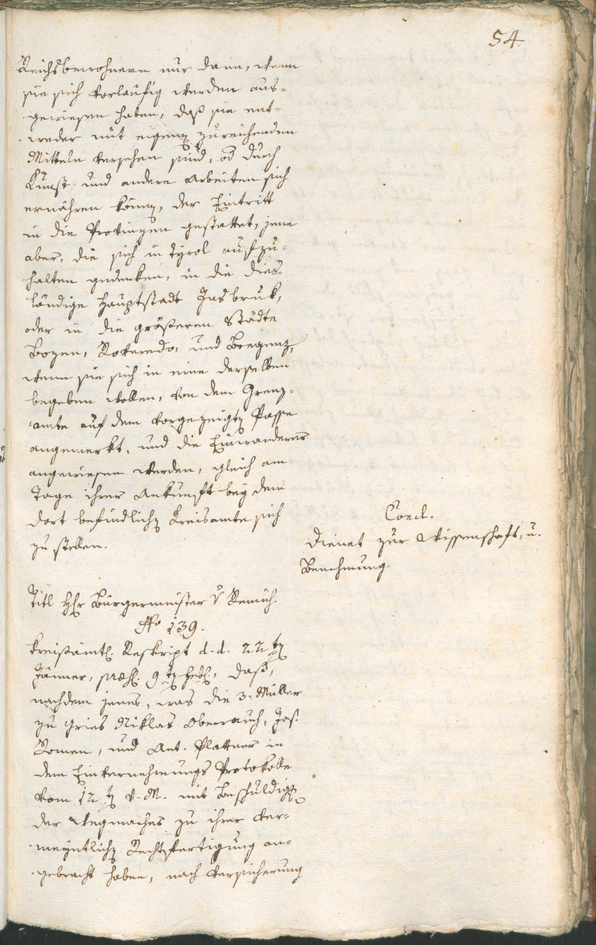 54.
Reichsbewohnern nur dann, wenn
sie sich vorläufig werden aus-
gewiesen haben, daß sie ent-
weder mit eigenen zureichenden
Mitteln versehen sind, od durch
Kunst und andere Arbeiten sich
ernähren können, der Eintritt
in die Provinzen gestattet, jene
aber, die sich in Tyrol aufzu-
halten gedenken, in die dies-
ländige Hauptstadt Insbruk,
oder in die größeren Städte
Bozen, Roveredo, und Bregenz,
wenn sie sich in eine derselben
begeben wollen, von dem Grenz-
amte auf dem vorgezeigten Passe
angemerkt, und die Einwanderer
angewiesen werden, gleich am
Tage ihrer Ankunft bey dem
dort befindlichen Kreisamte sich
zu stellen.
Concl.
Dienet zur Wissenschaft, u.
Benehmung.
Titl Hr Bürgermeister v
No 139.
Kreisämtl. Reskript d. d. 22 tn
Jänner, praes. 9 tn daß,
nachdem jenes, was die 3. Müller
zu Gries Niklas Oberrauch, Jos.
Romen, und Ant. Plattner in
dem Einvernehmungs Protokolle
vom 12 tn v. M. mit Beschuldigg
der Wegmacher zu ihrer ver-
meyntlichen Rechtfertigung an-
gebracht haben, nach Versicherung